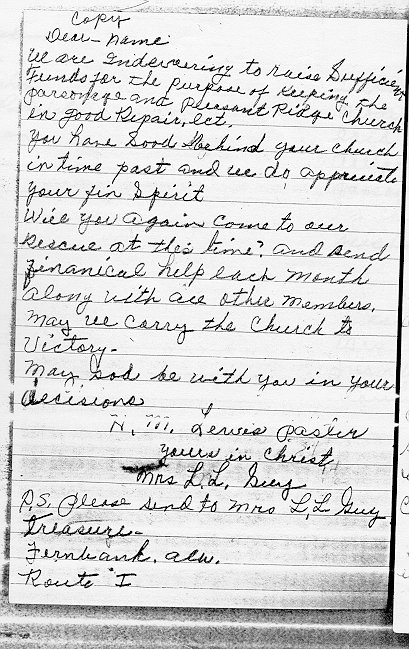 Copy
Dear - Name
We are Indevering to raise Sufficien
Funds for the purpose of keeping the
parsonage and Pleasant Ridge Church
in good Repair, ect.
You have Sood Behind your Church
in time past and we do appreciate
your fin Spirit
Will you again come to our
Rescue at this time? and send
Finanical help each Month
along with all other Members.
May we carry the Church to
Victory -
May God be with you in your
decisions
N. M. Lewis paster
yours in Christ
Mrs L. L. Guy
P.S. please send to Mrs L. L Guy
Treasure -
Fernbank. ala.
Route I